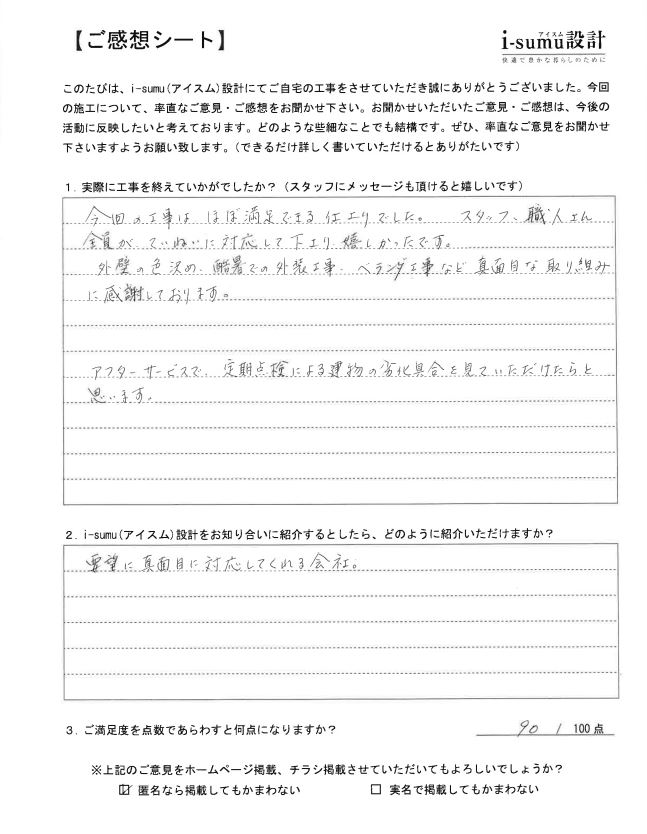 【ご感想シート】
アイスム
i-sumu設計
快適で豊かな暮らしのために
このたびは、i-sumu(アイスム)設計にてご自宅の工事をさせていただき誠にありがとうございました。今回
の施工について、率直なご意見・ご感想をお聞かせ下さい。お聞かせいただいたご意見・ご感想は、今後の
活動に反映したいと考えております。どのような些細なことでも結構です。ぜひ、率直なご意見をお聞かせ
下さいますようお願い致します。（できるだけ詳しく書いていただけるとありがたいです）
1．実際に工事を終えていかがでしたか？（スタッフにメッセージも頂けると嬉しいです）
今回の工事は、ほぼ満足できる仕上りでした。 スタッフ、職人さん
全員が、ていねいに対応して下さり嬉しかったです。
外壁の色決め、酷暑での外装工事、ベランダ工事など真面目な取り組み
に感謝しております。
アフターサービスで、定期点検による建物の劣化具合を見ていただけたらと
思います。
2．i-sumu(アイスム)設計をお知り合いに紹介するとしたら、どのように紹介いただけますか？
要望に真面目に対応してくれる会社。
3．ご満足度を点数であらわすと何点になりますか？ 90 / 100点
※上記のご意見をホームページ掲載、チラシ掲載させていただいてもよろしいでしょうか？
☑ 匿名なら掲載してもかまわない □ 実名で掲載してもかまわない